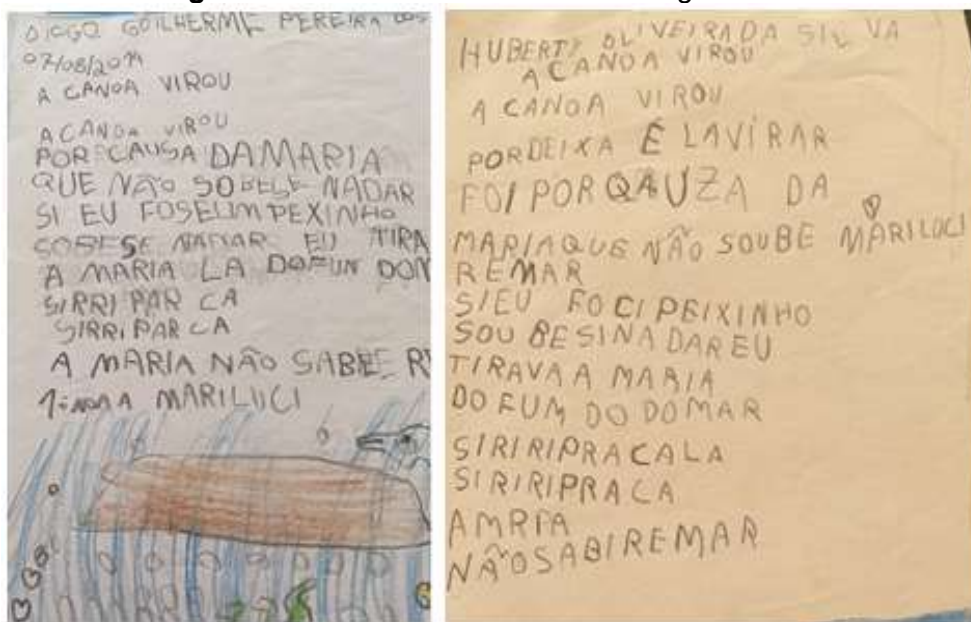 DIOGO GUILHERME PEREIRA DOS
07/08/2019
A CANOA VIROU
A CANOA VIROU
POR CAUSA DAMARIA
QUE NÃO SOBESE NADAR
SI EU FOSEUM PEXINHO
SOBESE NADAR EU TIRA
A MARIA LA DOFUN DOM
SIRRI PAR CA
SIRRI PAR CA
A MARIA NÃO SABRE RE
A MARILUCI
HUBERTY OLIVEIRADA SILVA
A CANOA VIROU
A CANOA VIROU
PORDEIXA É LAVIRAR
FOI PORQAUZA DA
MARIAQUE NÃO SOUBE MARILUCI
REMAR
SIEU FOCI PEIXINHO
SOU BESINADAREU
TIRAVAA MARIA
DOFUM DO DOMAR
SIRIRIPRACALA
SIRIRIPRACA
AMRIA
NÃOSABIREMAR